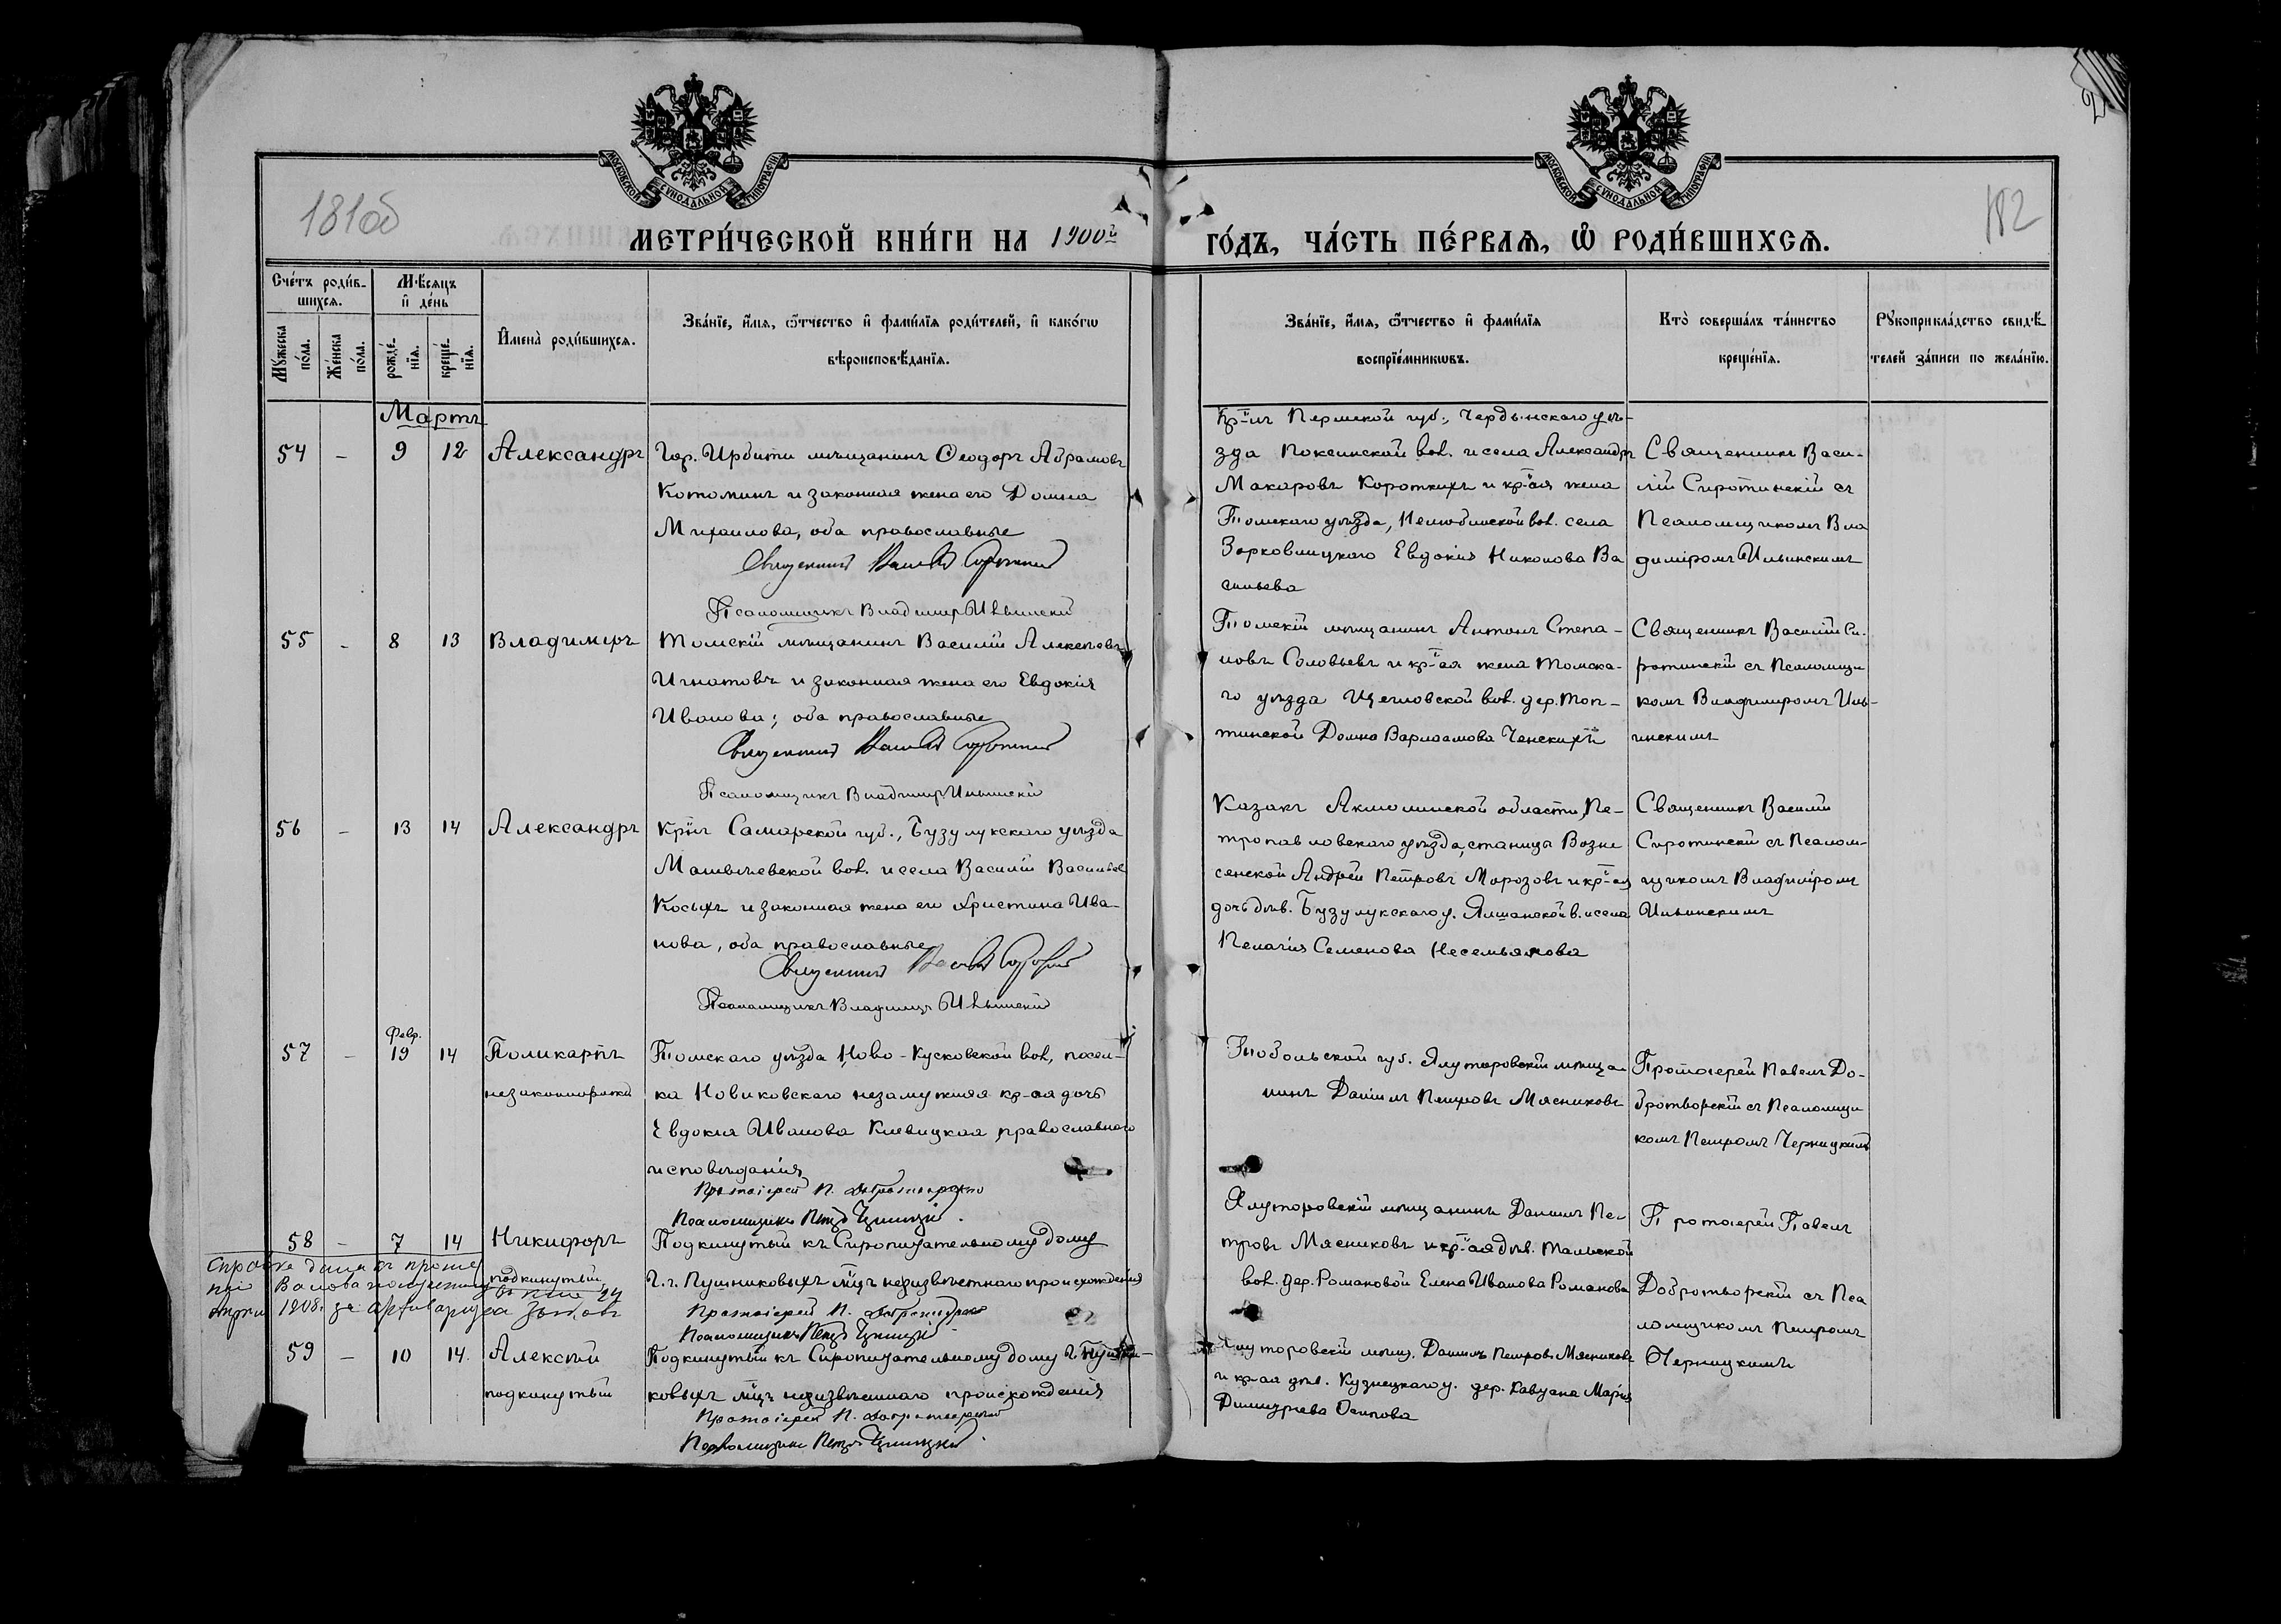 181об
182
МОСКОВСКОЙ СУНОДАЛЬНОЙ ТИПОГРАФІИ
МОСКОВСКОЙ СУНОДАЛЬНОЙ ТИПОГРАФІИ
МЕТРИ́ЧЕСКОЙ КНИ́ГИ НА 1900й
ГО́ДЪ, ЧА́СТЬ ПЕ́РВАѦ, Ѽ РОДИ́ВШИХСѦ.
Сче́тъ роди́в-
шихсѧ.
Мꙋ́жеска по́ла.
Же́нска по́ла.
Мѣ́сѧцъ
и҆ де́нь
рожде́-нїѧ.
креще́-нїѧ.
И҆мена̀ роди́вшихсѧ.
Зва́нїе, и҆́мѧ, ѻ҆́тчество и҆ фами́лїѧ роди́телей, и҆ како́гѡ
вѣроисповѣ́данїѧ.
Зва́нїе, и҆́мѧ, ѻ҆́тчество и҆ фами́лїѧ
воспрїе́мникѡвъ.
Кто̀ соверша́лъ та́инство
креще́нїѧ.
Рꙋкоприкла́дство свидѣ́-
телей за́писи по жела́нїю.
Мартъ
54 – 9 12 Александръ
Гор. Ирбити мѣщанинъ Ѳеодоръ Абрамовъ
Котоминъ и законная жена его Домна
Михаилова, оба православные
Священникъ Василій Сиротинскій
Псаломщикъ Владимиръ Ильинскій
Кр-нъ Пермской губ., Чердынскаго уѣ-
зда Покчинской вол. и села Александръ
Макаровъ Короткихъ и кр-ая жена
Томскаго уѣзда, Нелюбинской вол. села
Зоркольцкаго Евдокія Никонова Ва
сильева
Священникъ Васи-
лій Сиротинскій съ
Псаломщикомъ Вла
диміромъ Ильинскимъ
55 – 8 13 Владимиръ
Томскій мѣщанинъ Василій Алексѣевъ
Игнатовъ и законная жена его Евдокія
Иванова; оба православные
Священникъ Василій Сиротинскій
Псаломщикъ Владимиръ Ильинскій
Томскій мѣщанинъ Антонъ Степа-
новъ Соловьевъ и кр-ая жена Томска-
го уѣзда Щегловской вол. дер. Топ-
тинской Домна Варлаамова Ченскихъ
Священникъ Василій Си-
ротинскій съ Псаломщи
комъ Владимиромъ Иль-
инскимъ
56 – 13 14 Александръ
Кр-нъ Самарской губ., Бузулукскаго уѣзда
вол. и села Василій Васильев
Косыхъ и законная жена его Христина Ива-
нова, оба православные
Священникъ Василій Сиротинскій
Псаломщикъ Владимиръ Ильинскій
Казакъ Акмолинской области, Пе-
тропавловскаго уѣзда, станицы Возне
сенской Андрей Петровъ Морозовъ и кр-ая
дочь дѣв. Бузулукскаго у. Ялшанской в. и села
Пелагія Семенова Несемьянова
Священникъ Василій
Сиротинскій съ Псалом-
щикомъ Владиміромъ
Ильинскимъ
Февр.
57 – 19 14 Поликарпъ
незаконнорожд
Томскаго уѣзда Ново-Кусковской вол, посел-
ка Новиковскаго незамужняя кр-ая дочь
Евдокія Иванова Клевицкая православнаго
исповѣданія
Протоіерей П. Добротворскій
Псаломщикъ Петръ Черницкій.
Тобольской губ. Ялуторовскій мѣща-
нинъ Даніилъ Петровъ Мясниковъ
Протоіерей Павелъ До-
бротворскій съ Псаломщи
комъ Петромъ Черницкимъ
58 – 7 14 Никифоръ
подкинутый
Подкинутый къ Сиропитательному дому
Г.г. Пушниковыхъ мѣщ неизвѣстнаго происхожденія
Протоіерей П. Добротворскій
Псаломщикъ Петръ Черницкій
Ялуторовскій мѣщанинъ Даніилъ Пе-
тровъ Мясниковъ и кр-ая дѣв. Тальской
вол. дер. Романовой Елена Иванова Романова
Протоіерей Павелъ
Добротворскій съ Пса
ломщикомъ Петромъ
Черницкимъ
Справка дана
1908.
59 – 10 14. Алексѣй
подкинутый
Подкинутый къ Сиропитательному дому Г. Пушни-
ковыхъ мѣщ неизвѣстнаго происхожденія
Протоіерей П. Добротворскій
Псаломщикъ Петръ Черницкій.
Ялуторовскій мѣщ. Даніилъ Петровъ Мясниковъ
и кр-ая дѣв. Кузнецкаго у. дер. Мария
Димитриева Осипова